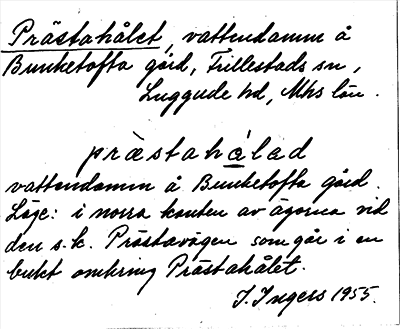 Prästahålet, vattendamm å
Bunketofta gård, Fillestads sn,
Luggude hd, Mhs län.
præstahàlad
vattendamm å Bunketofta gård.
Läge: i norra kanten av ägorna vid
den s.k. Prästavägen som går i en
bukt omkring Prästahålet.
I. Ingers 1955.